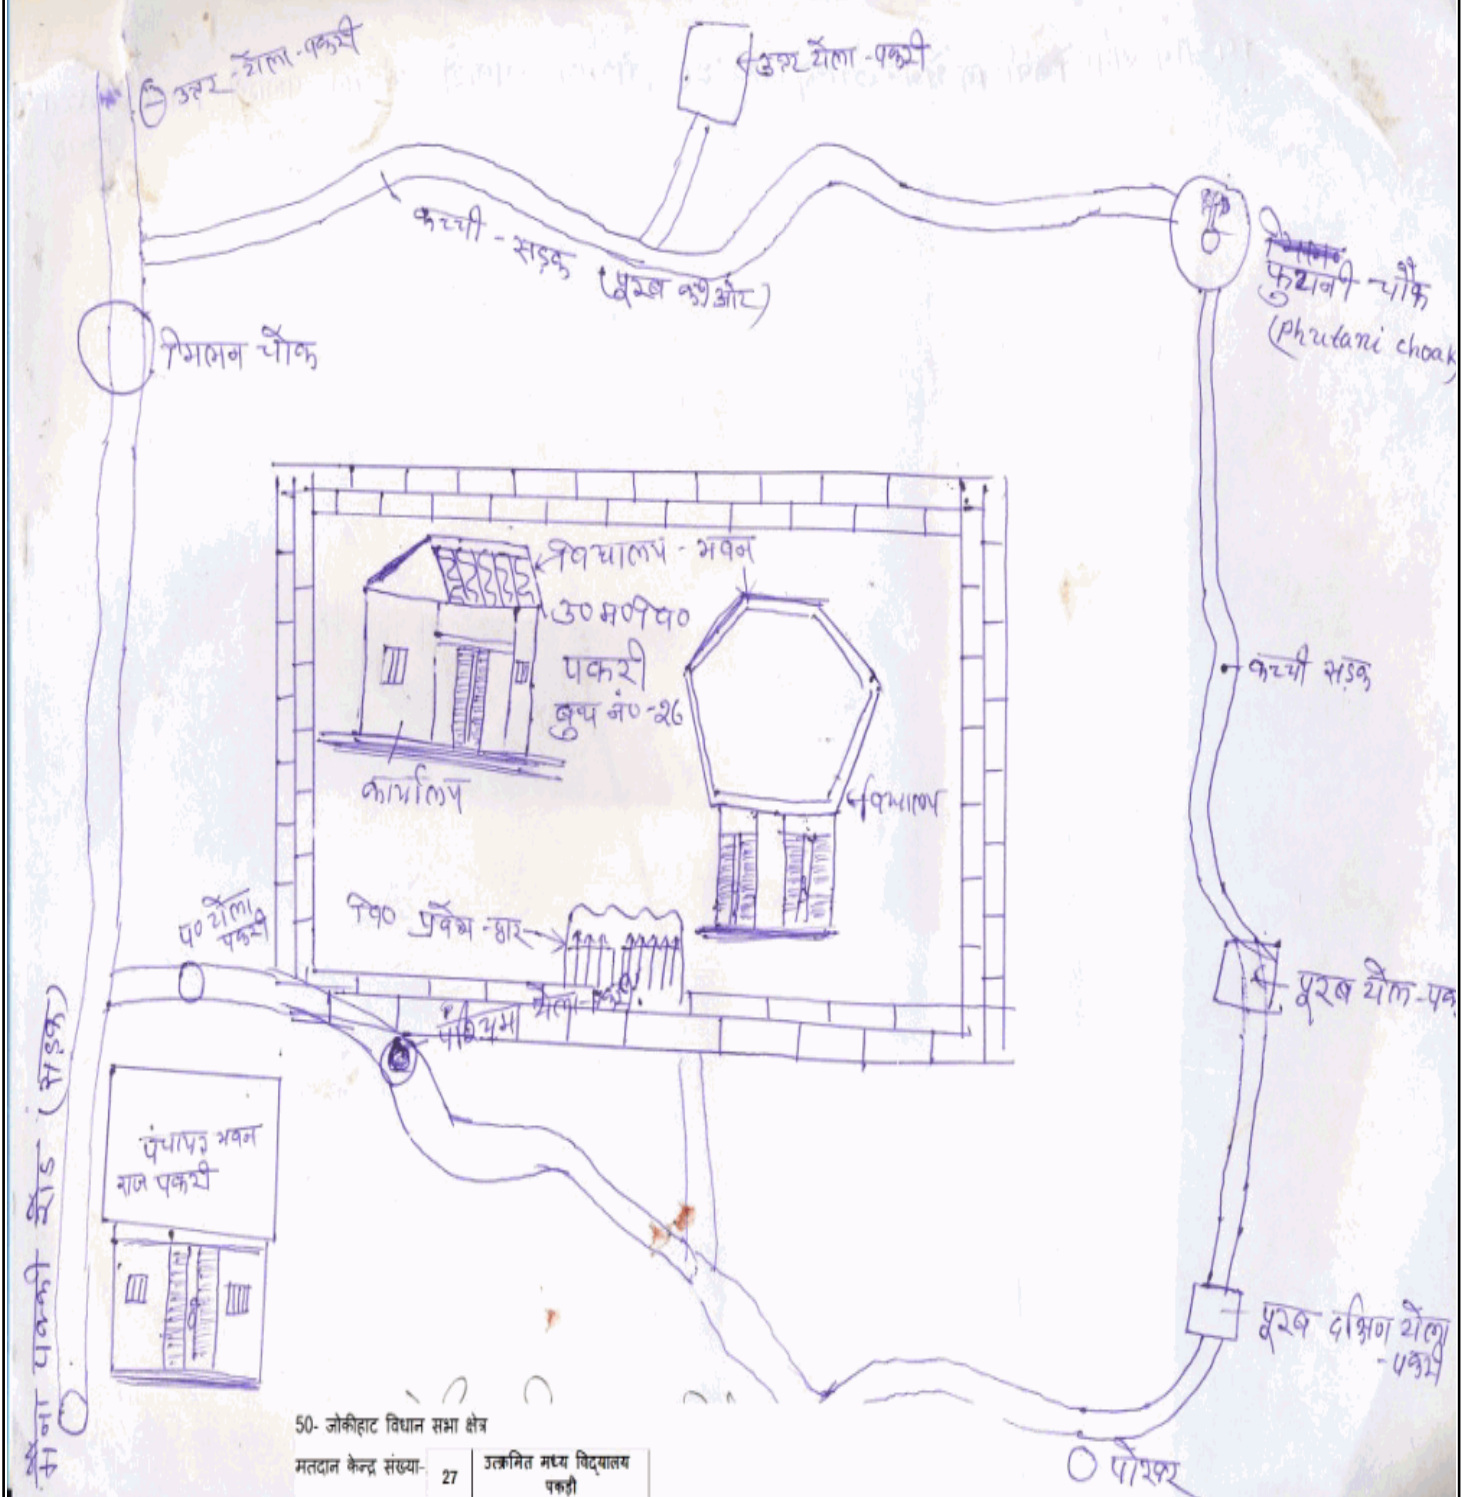 उत्तर-टोला-पकरी
उत्तर टोला-पकरी
कच्ची-सड़क (पूरब की ओर)
फुटानी-चौक
(phutani choak)
मिलन चौक
विद्यालय-भवन
उ० म० वि०
पकरी
बुथ नं०-26
कार्यालय
विद्यालय
कच्ची सड़क
प० टोला
पकरी
वि० प्रवेश-द्वार
पश्चिम टोला-पकरी
पूरब टोल-पक
पंचायत भवन
राज पकरी
पूरब दक्षिण टोला
-पकरी
पोखर
पक्की रोड (सड़क)
50- जोकीहाट विधान सभा क्षेत्र
मतदान केन्द्र संख्या- 27 उत्क्रमित मध्य विद्यालय
पकड़ी